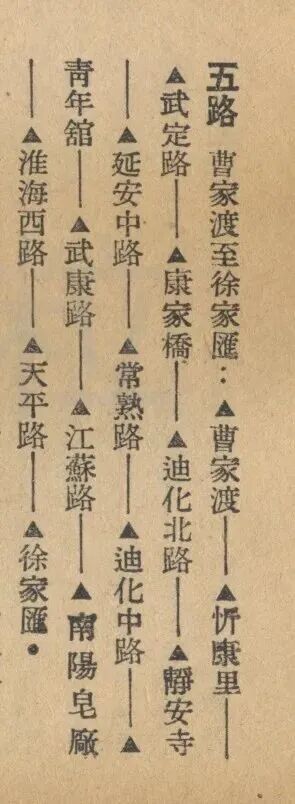 五路　曹家渡至徐家匯：▲曹家渡——▲忻康里——
▲武定路——▲康家橋——▲迪化北路——▲靜安寺
——▲延安中路——▲常熟路——▲迪化中路——▲
青年舘——▲武康路——▲江蘇路——▲南陽皂廠
——▲淮海西路——▲天平路——▲徐家匯．